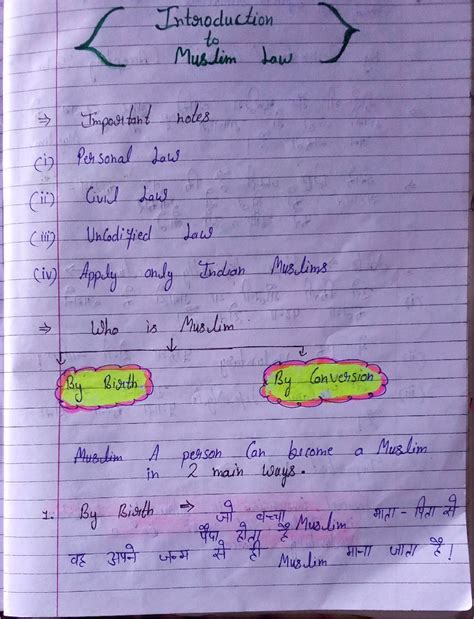 Introduction
to
Muslim Law
⇒ Important notes
(i) Personal Law
(ii) Civil Law
(iii) Uncodified Law
(iv) Apply only Indian Muslims
⇒ Who is Muslim
By Birth
By Conversion
Muslim A person Can become a Muslim
in 2 main ways.
1. By Birth ⇒ जो बच्चा Muslim माता - पिता से
पैदा होता है
वह अपने जन्म से ही Muslim माना जाता है!